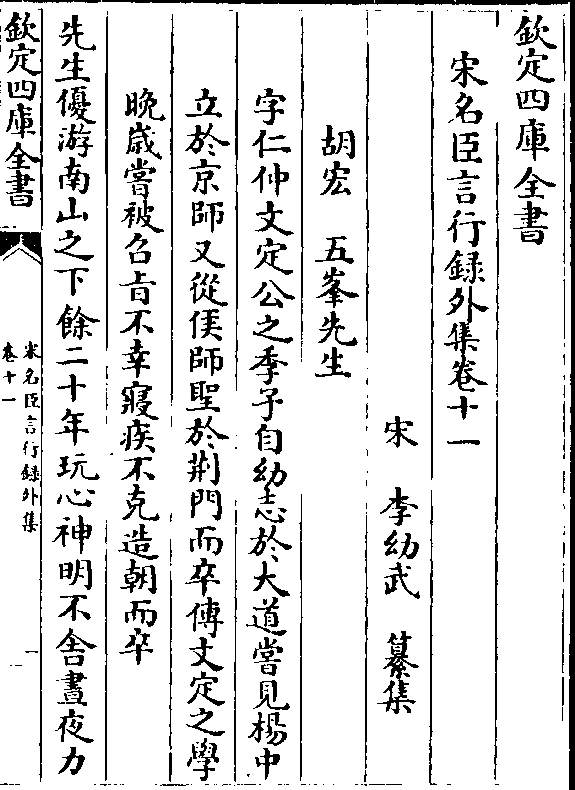 欽定四庫全書
宋名臣言行録外集卷十一
宋 李幼武 纂集
胡宏 五峯先生
字仁仲文定公之季子自幼志於大道嘗見楊中
立於京師又從侯師聖於荆門而卒傳文定之學
晩歳嘗被召旨不幸寢疾不克造朝而卒
先生優游南山之下餘二十年玩心神明不舎晝夜力
欽定四庫全書
宋名臣言行録外集
卷十一
一